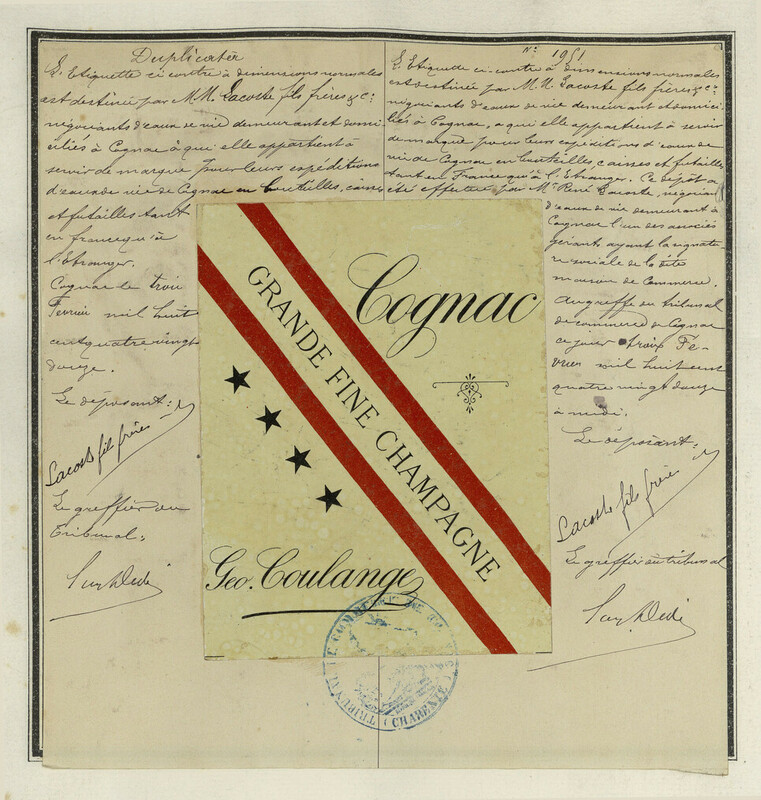 Duplicata
L'Etiquette ci contre à dimensions normales
est destinée par M.M. Lacoste fils frères & Cie
négociants d'eaux de vie demeurant et domi-
ciliés à Cognac à qui elle appartient à
servir de marque pour leurs expéditions
d'eaux de vie de Cognac en bouteilles, caisses
et futailles tant
en France qu'à
l'Etranger.
Cognac le trois
Février mil huit
cent quatre vingt
douze.
Le déposant:
Lacoste fils frères
Le greffier du
Tribunal:
No 1951
L'Etiquette ci-contre à dimensions normales
est destinée par M.M. Lacoste fils frères & Cie
négociants d'eaux de vie demeurant et domici-
liés à Cognac, à qui elle appartient à servir
de marque pour leurs expéditions d'eaux de
vie de Cognac en bouteilles, caisses et futailles
tant en France qu'à l'Etranger. Ce dépôt a
été effectué par Mr René Lacoste, négociant
d'eaux de vie demeurant à
Cognac l'un des associés
gérants ayant la signatu-
re sociale de la dite
maison de Commerce.
Au greffe du tribunal
de commerce de Cognac
ce jour trois Fé-
vrier mil huit cent
quatre vingt douze
à midi.
Le déposant:
Lacoste fils frères
Le greffier du tribunal
Cognac
GRANDE FINE CHAMPAGNE
Geo. Coulange
TRIBUNAL DE COMMERCE DE
(CHARENTE)